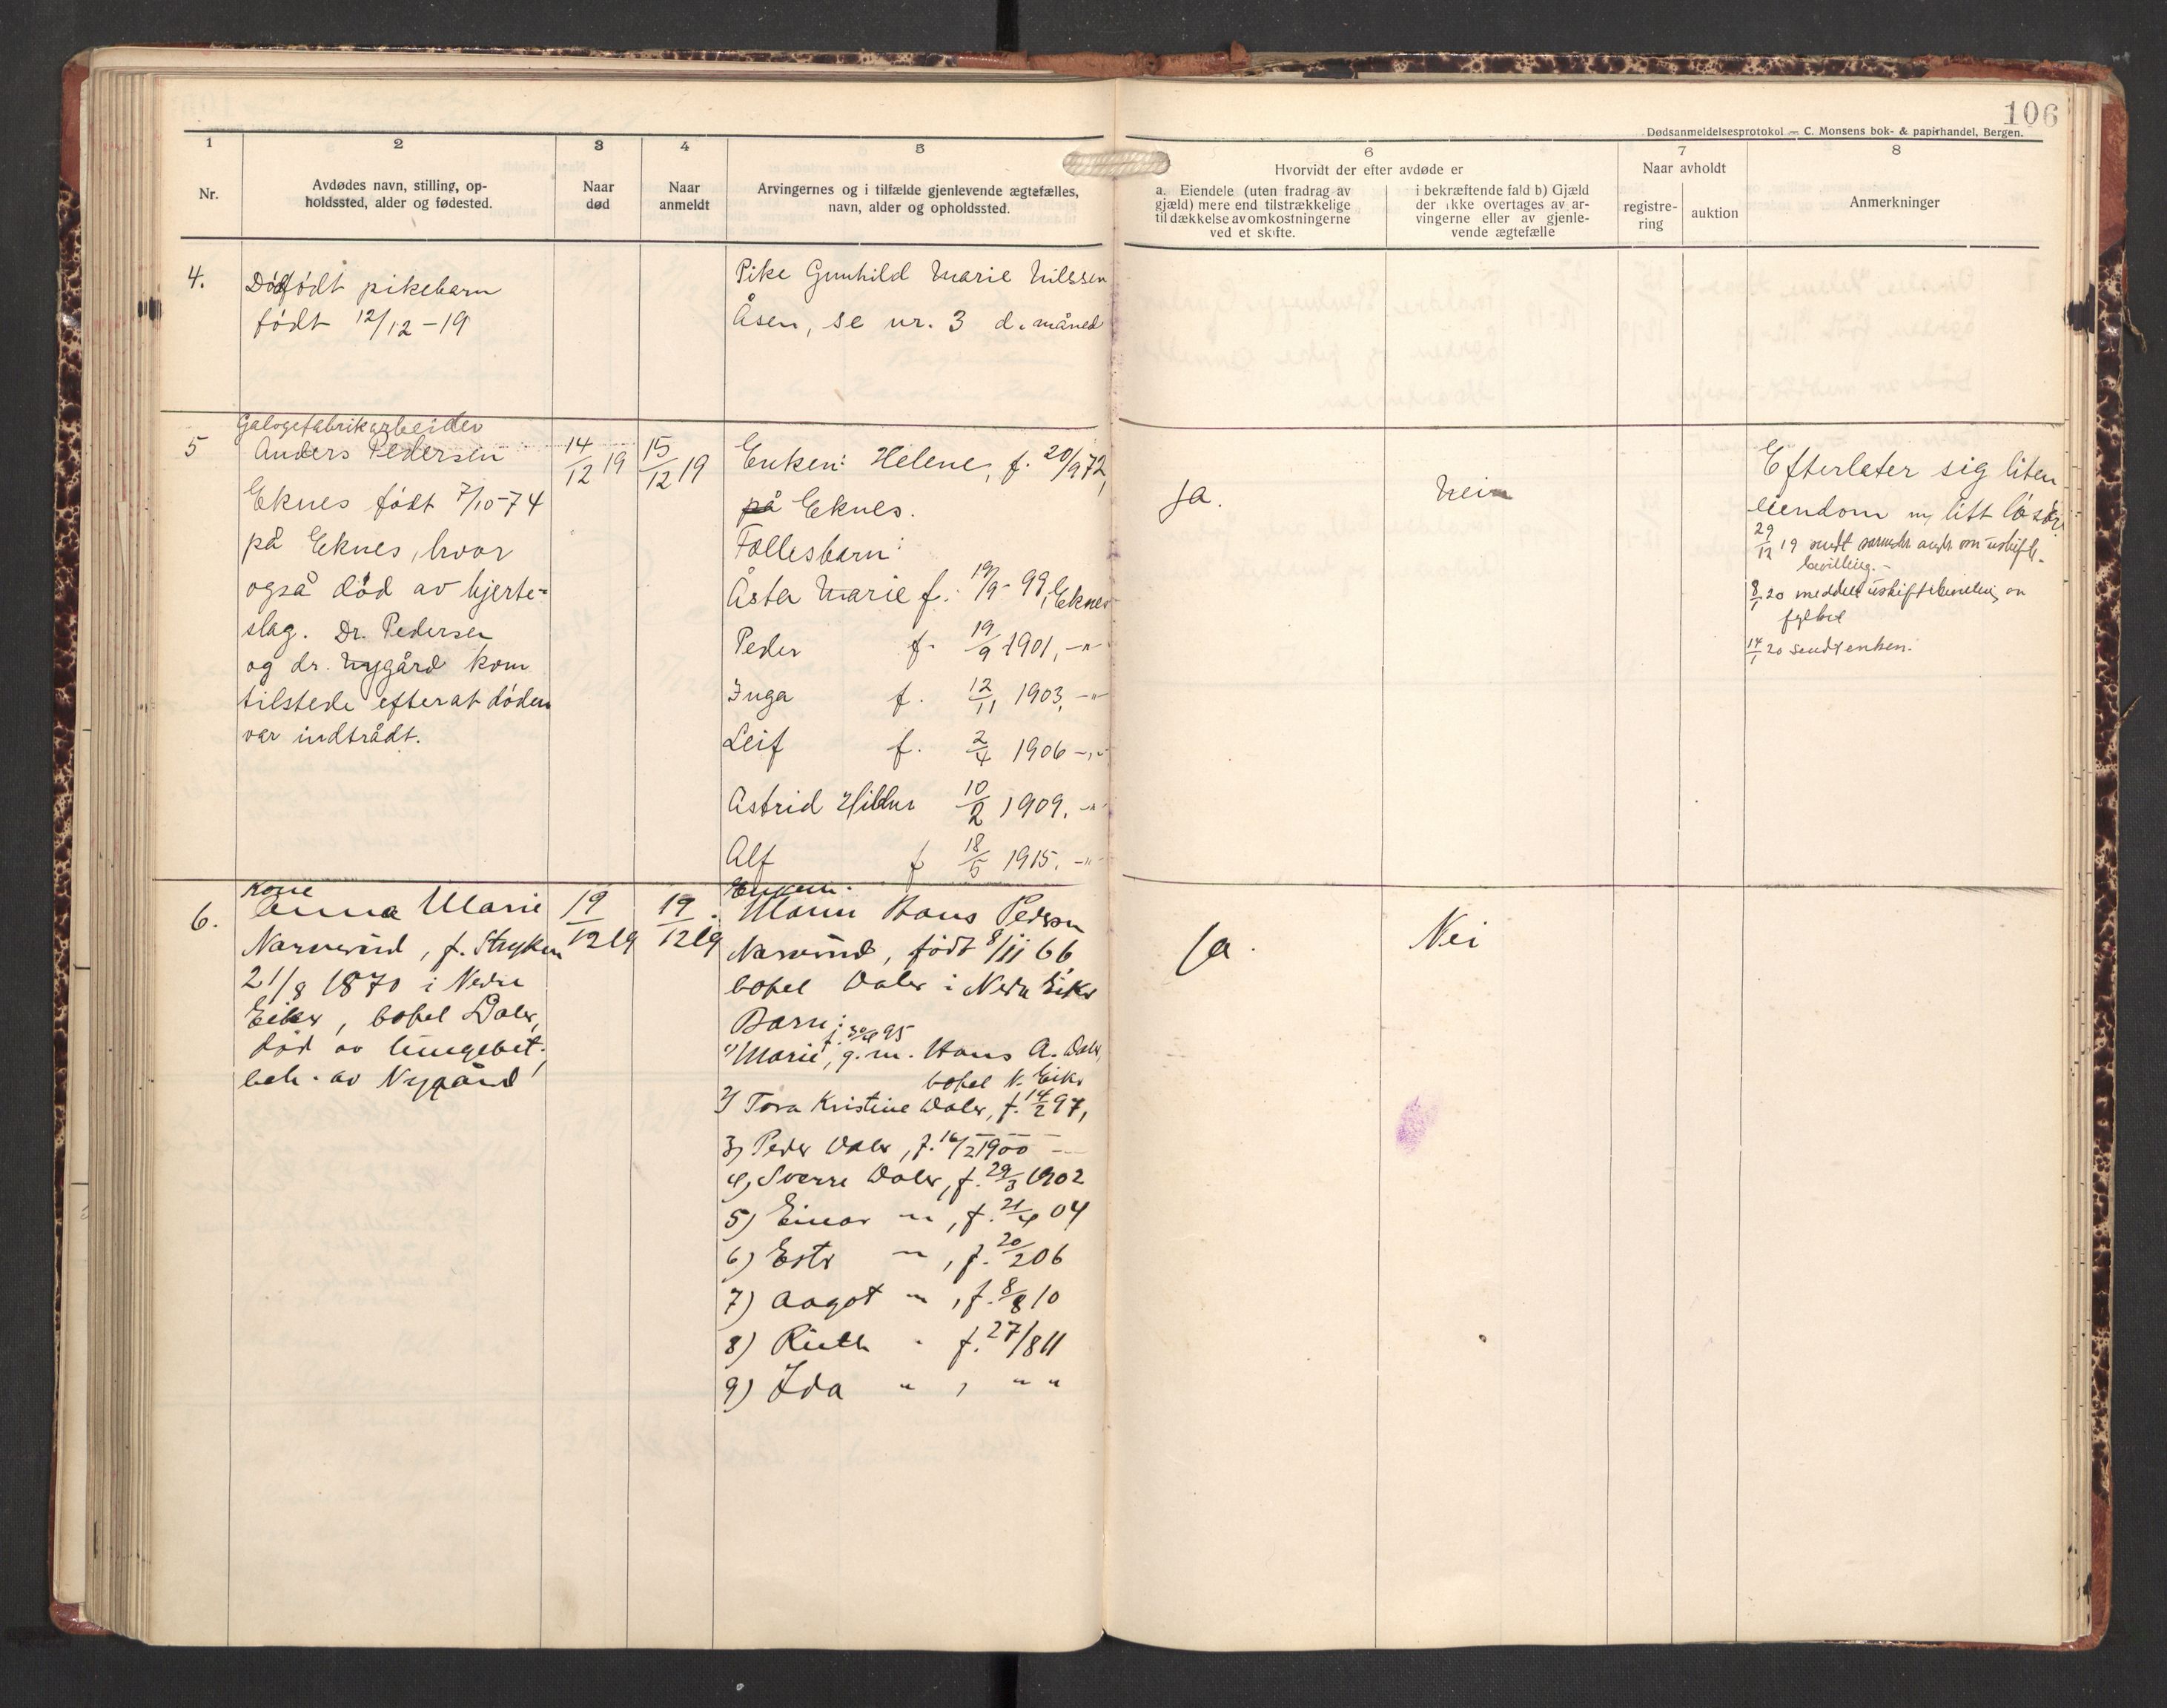 106
Dødsanmeldelsesprotokol — C. Monsens bok- & papirhandel, Bergen.
1
Nr.
2
Avdødes navn, stilling, op-
holdssted, alder og fødested.
3
Naar
død
4
Naar
anmeldt
5
Arvingernes og i tilfælde gjenlevende ægtefælles,
navn, alder og opholdssted.
6
Hvorvidt der efter avdøde er
a. Eiendele (uten fradrag av
gjæld) mere end tilstrækkelige
til dækkelse av omkostningerne
ved et skifte.
i bekræftende fald b) Gjæld
der ikke overtages av ar-
vingerne eller av gjenle-
vende ægtefælle
7
Naar avholdt
registre-
ring
auktion
8
Anmerkninger
4.
Dødfødt pikebarn
født 12/12-19
Pike Gunhild Marie Nilssen
Åsen, se nr. 3 d. måned
5
Galogefabrikarbeider
Anders Pedersen
Eknes født 7/10-74
på Eknes, hvor
også død av hjerte=
slag. Dr. Pedersen
og dr. Nygård kom
tilstede efterat døden
var indtrådt.
14/12 19
15/12 19
Enken: Helene, f. 20/9 72,
på Eknes.
Fællesbarn:
Åsta Marie f. 19/9-99, Eknes
Peder f. 19/9 1901, -"-
Inga f. 12/11 1903, -"-
Leif f. 2/4 1906 -"-
Astrid Hildur 10/2 1909, -"-
Alf f 18/5 1915. -"-
ja.
Nein
Efterlater sig liten
eiendom m litt løsøre
29/12 19 sendt
bevilling.-
8/1 20 meddelt uskiftebevilling
14/1 20 sendt enken.
6.
Kone
Anna Marie
Narverud, f. Stryken
21/8 1870 i Nedre
Eiker, bopel Daler,
død av lungebet.,
beh. av Nygård
19/12 19
19/12 19
Mann Hans Pedersen
Narverud, født 8/11 66
bopel Daler i Nedre Eiker
Barn:
f. 30/4 95
1) Marie, g.m. Hans A. Daler,
bopel N. Eiker
2) Tora Kristine Daler, f. 14/2 97,
3) Peder Daler, f. 16/2 1900 —
4) Sverre Daler, f. 29/3 1902
5) Einar -"-, f. 21/4 04
6) Ester -"-, f. 20/2 06
7) Aagot -"-, f. 8/8 10
8) Ruth " f. 27/8 11
9) Ida " , " "
Ja.
Nei